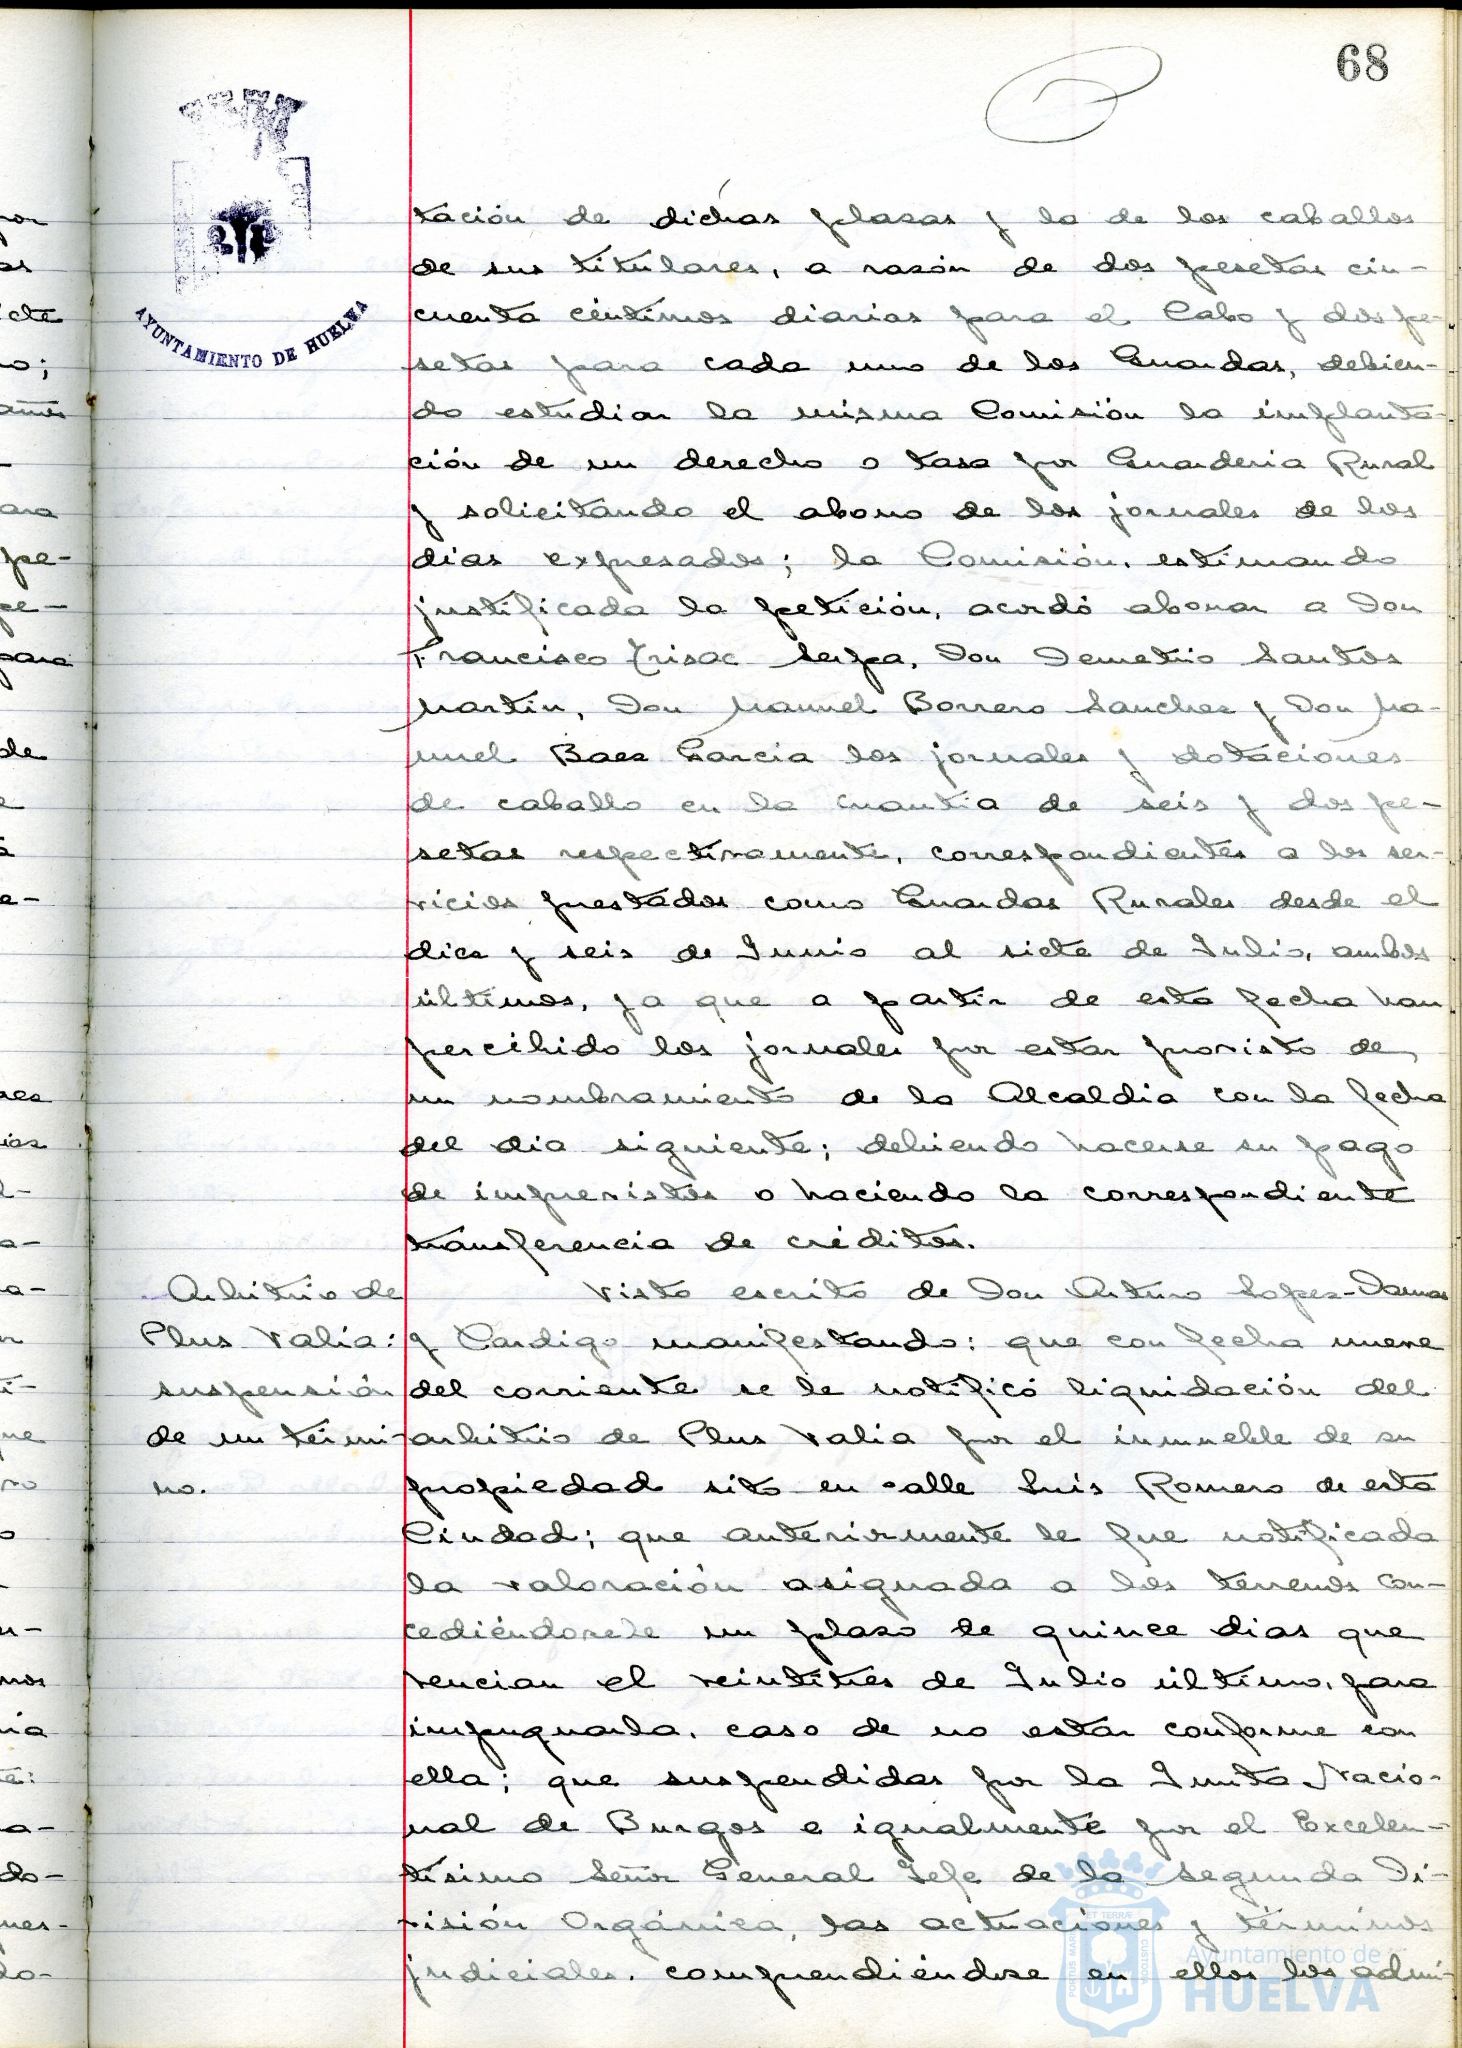 68
AYUNTAMIENTO DE HUELVA
tación de dichas plazas y la de los caballos
de sus titulares, a razón de dos pesetas cin-
cuenta céntimos diarias para el Cabo y dos pe-
setas para cada uno de los Guardas, debien-
do estudiar la misma Comisión la implanta-
ción de un derecho o tasa por Guarderia Rural
y solicitando el abono de los jornales de los
dias expresados; la Comisión, estimando
justificada la petición, acordó abonar a Don
Francisco Serpa, Don Demetrio Santos
Martín, Don Manuel Borrero Sanchez y Don Ma-
nuel Baez Garcia los jornales y dotaciones
de caballo en la cuantia de seis y dos pe-
setas respectivamente, correspondientes a los ser-
vicios prestados como Guardas Rurales desde el
diez y seis de Junio al siete de Julio, ambos
últimos, ya que a partir de esta fecha han
percibido los jornales por estar provisto de
un nombramiento de la Alcaldia con la fecha
del dia siguiente; debiendo hacerse su pago
de imprevistos o haciendo la correspondiente
transferencia de créditos.
Arbitrio de
Plus Valia:
suspensión
de un térmi-
no.
Visto escrito de Don Arturo Lopez-Damas
y Cardigo manifestando: que con fecha nueve
del corriente se le notificó liquidación del
arbitrio de Plus Valia por el inmueble de su
propiedad sito en calle Luis Romero de esta
Ciudad; que anteriormente le fue notificada
la valoración asignada a los terrenos con-
cediéndosele un plazo de quince dias que
vencian el veintitres de Julio último, para
impugnarla, caso de no estar conforme con
ella; que suspendidas por la Junta Nacio-
nal de Burgos e igualmente por el Excelen-
tísimo Señor General Jefe de la Segunda Di-
visión Orgánica, las actuaciones y términos
judiciales, comprendiéndose en ellos los admi-
Ayuntamiento de
HUELVA